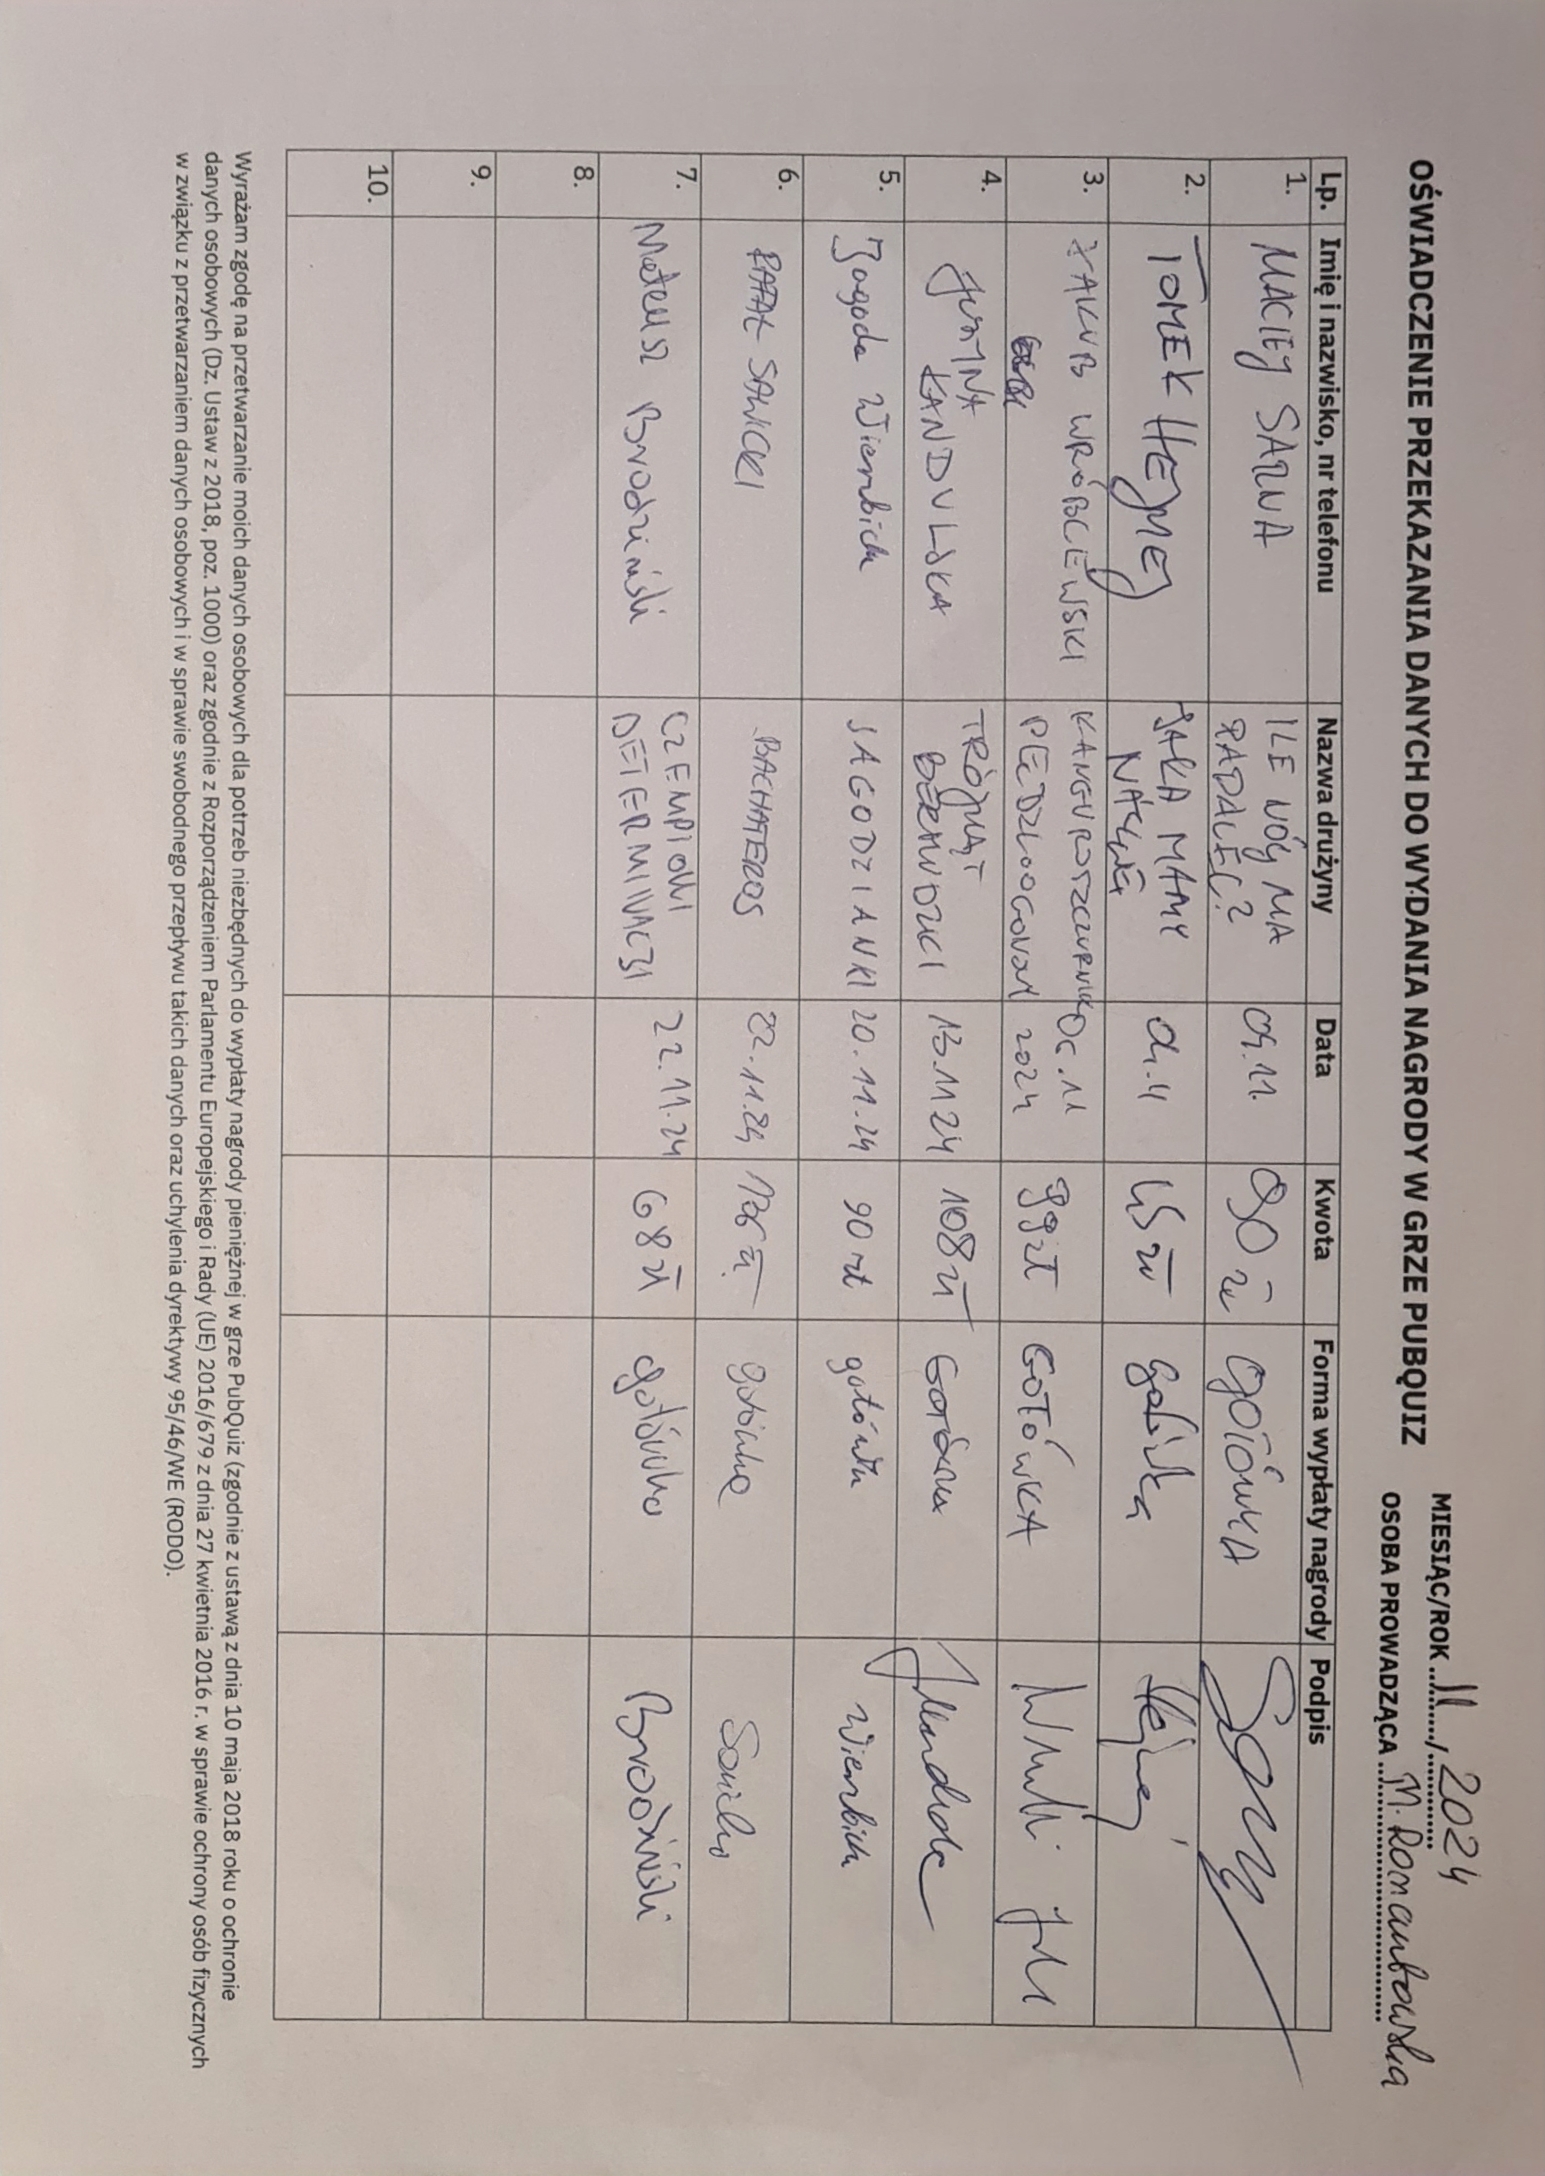 OŚWIADCZENIE PRZEKAZANIA DANYCH DO WYDANIA NAGRODY W GRZE PUBQUIZ
MIESIĄC/ROK 11 / 2024
OSOBA PROWADZĄCA M. Romanowska
Lp. Imię i nazwisko, nr telefonu Nazwa drużyny Data Kwota Forma wypłaty nagrody Podpis
1. MACIEJ SARNA ILE NÓG MA 04.11. 90 zł GOTÓWKA
PADALEC?
2. TOMEK HEJMEJ JAKA MAMY 04.11 45 zł Gotówka Hejmej
3. JAKUB WRÓBLEWSKI 06.11
2024 99zł GOTÓWKA
4. JUSTYNA TRÓJKĄT 13.11 24 108 zł Gotówka
KANDULSKA BERMUDZKI
5. Jagoda JAGODZIANKI 20.11.24 90 zł gotówka
6. RAFAŁ SAWICKI BACHATEROS 22.11.24 gotówka Sawicki
7. Mateusz Brodziński CZEMPIONI 22.11.24 68 zł gotówka Brodziński
DETERMINACJI
8.
9.
10.
Wyrażam zgodę na przetwarzanie moich danych osobowych dla potrzeb niezbędnych do wypłaty nagrody pieniężnej w grze PubQuiz (zgodnie z ustawą z dnia 10 maja 2018 roku o ochronie
danych osobowych (Dz. Ustaw z 2018, poz. 1000) oraz zgodnie z Rozporządzeniem Parlamentu Europejskiego i Rady (UE) 2016/679 z dnia 27 kwietnia 2016 r. w sprawie ochrony osób fizycznych
w związku z przetwarzaniem danych osobowych i w sprawie swobodnego przepływu takich danych oraz uchylenia dyrektywy 95/46/WE (RODO).